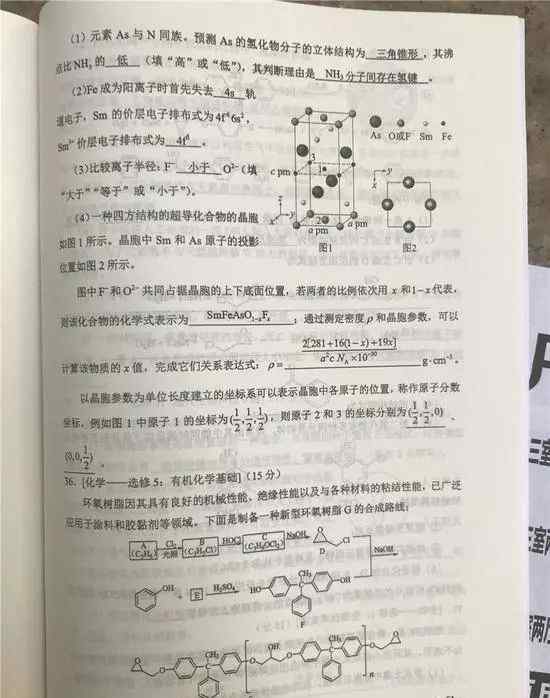 (1)元素 As 与 N 同族。预测 As 的氢化物分子的立体结构为 三角锥形,其沸
点比NH₃的 低 (填“高”或“低”),其判断理由是 NH₃分子间存在氢键 。
(2)Fe成为阳离子时首先失去 4s 轨
道电子,Sm 的价层电子排布式为4f⁶6s²,
Sm³⁺价层电子排布式为 4f⁵ 。
(3)比较离子半径:F⁻ 小于 O²⁻(填
“大于”“等于”或“小于”)。
(4)一种四方结构的超导化合物的晶胞
如图1所示。晶胞中 Sm 和 As 原子的投影
位置如图2所示。
As O或F Sm Fe
c pm
3
1
2
a pm a pm
z
x y
x y
图1 图2
图中F⁻和O²⁻共同占据晶胞的上下底面位置,若两者的比例依次用 x 和1-x代表,
则该化合物的化学式表示为 SmFeAsO₁₋ₓFₓ ;通过测定密度ρ和晶胞参数,可以
计算该物质的 x 值,完成它们关系表达式:ρ= 2[281+16(1-x)+19x] / a²c N_A×10⁻³⁰ g·cm⁻³。
以晶胞参数为单位长度建立的坐标系可以表示晶胞中各原子的位置,称作原子分数
坐标,例如图1中原子1的坐标为(1/2,1/2,1/2),则原子2和3的坐标分别为(1/2,1/2,0) 、
(0,0,1/2) 。
36. [化学——选修5:有机化学基础](15分)
环氧树脂因其具有良好的机械性能、绝缘性能以及与各种材料的粘结性能,已广泛
应用于涂料和胶黏剂等领域。下面是制备一种新型环氧树脂G的合成路线:
A (C₃H₆) Cl₂ 光照 B (C₃H₅Cl) HOCl C (C₃H₆OCl₂) NaOH O Cl D
NaOH
OH + E H₂SO₄ HO CH₃ OH F
O O CH₃ O OH O CH₃ O O n